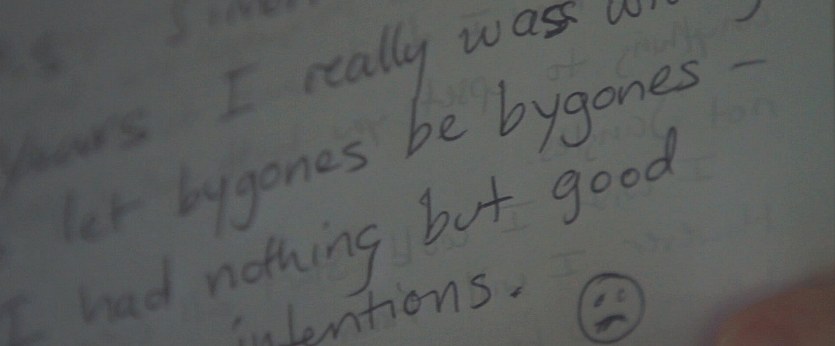 years I really wass
let bygones be bygones -
I had nothing but good
intentions.